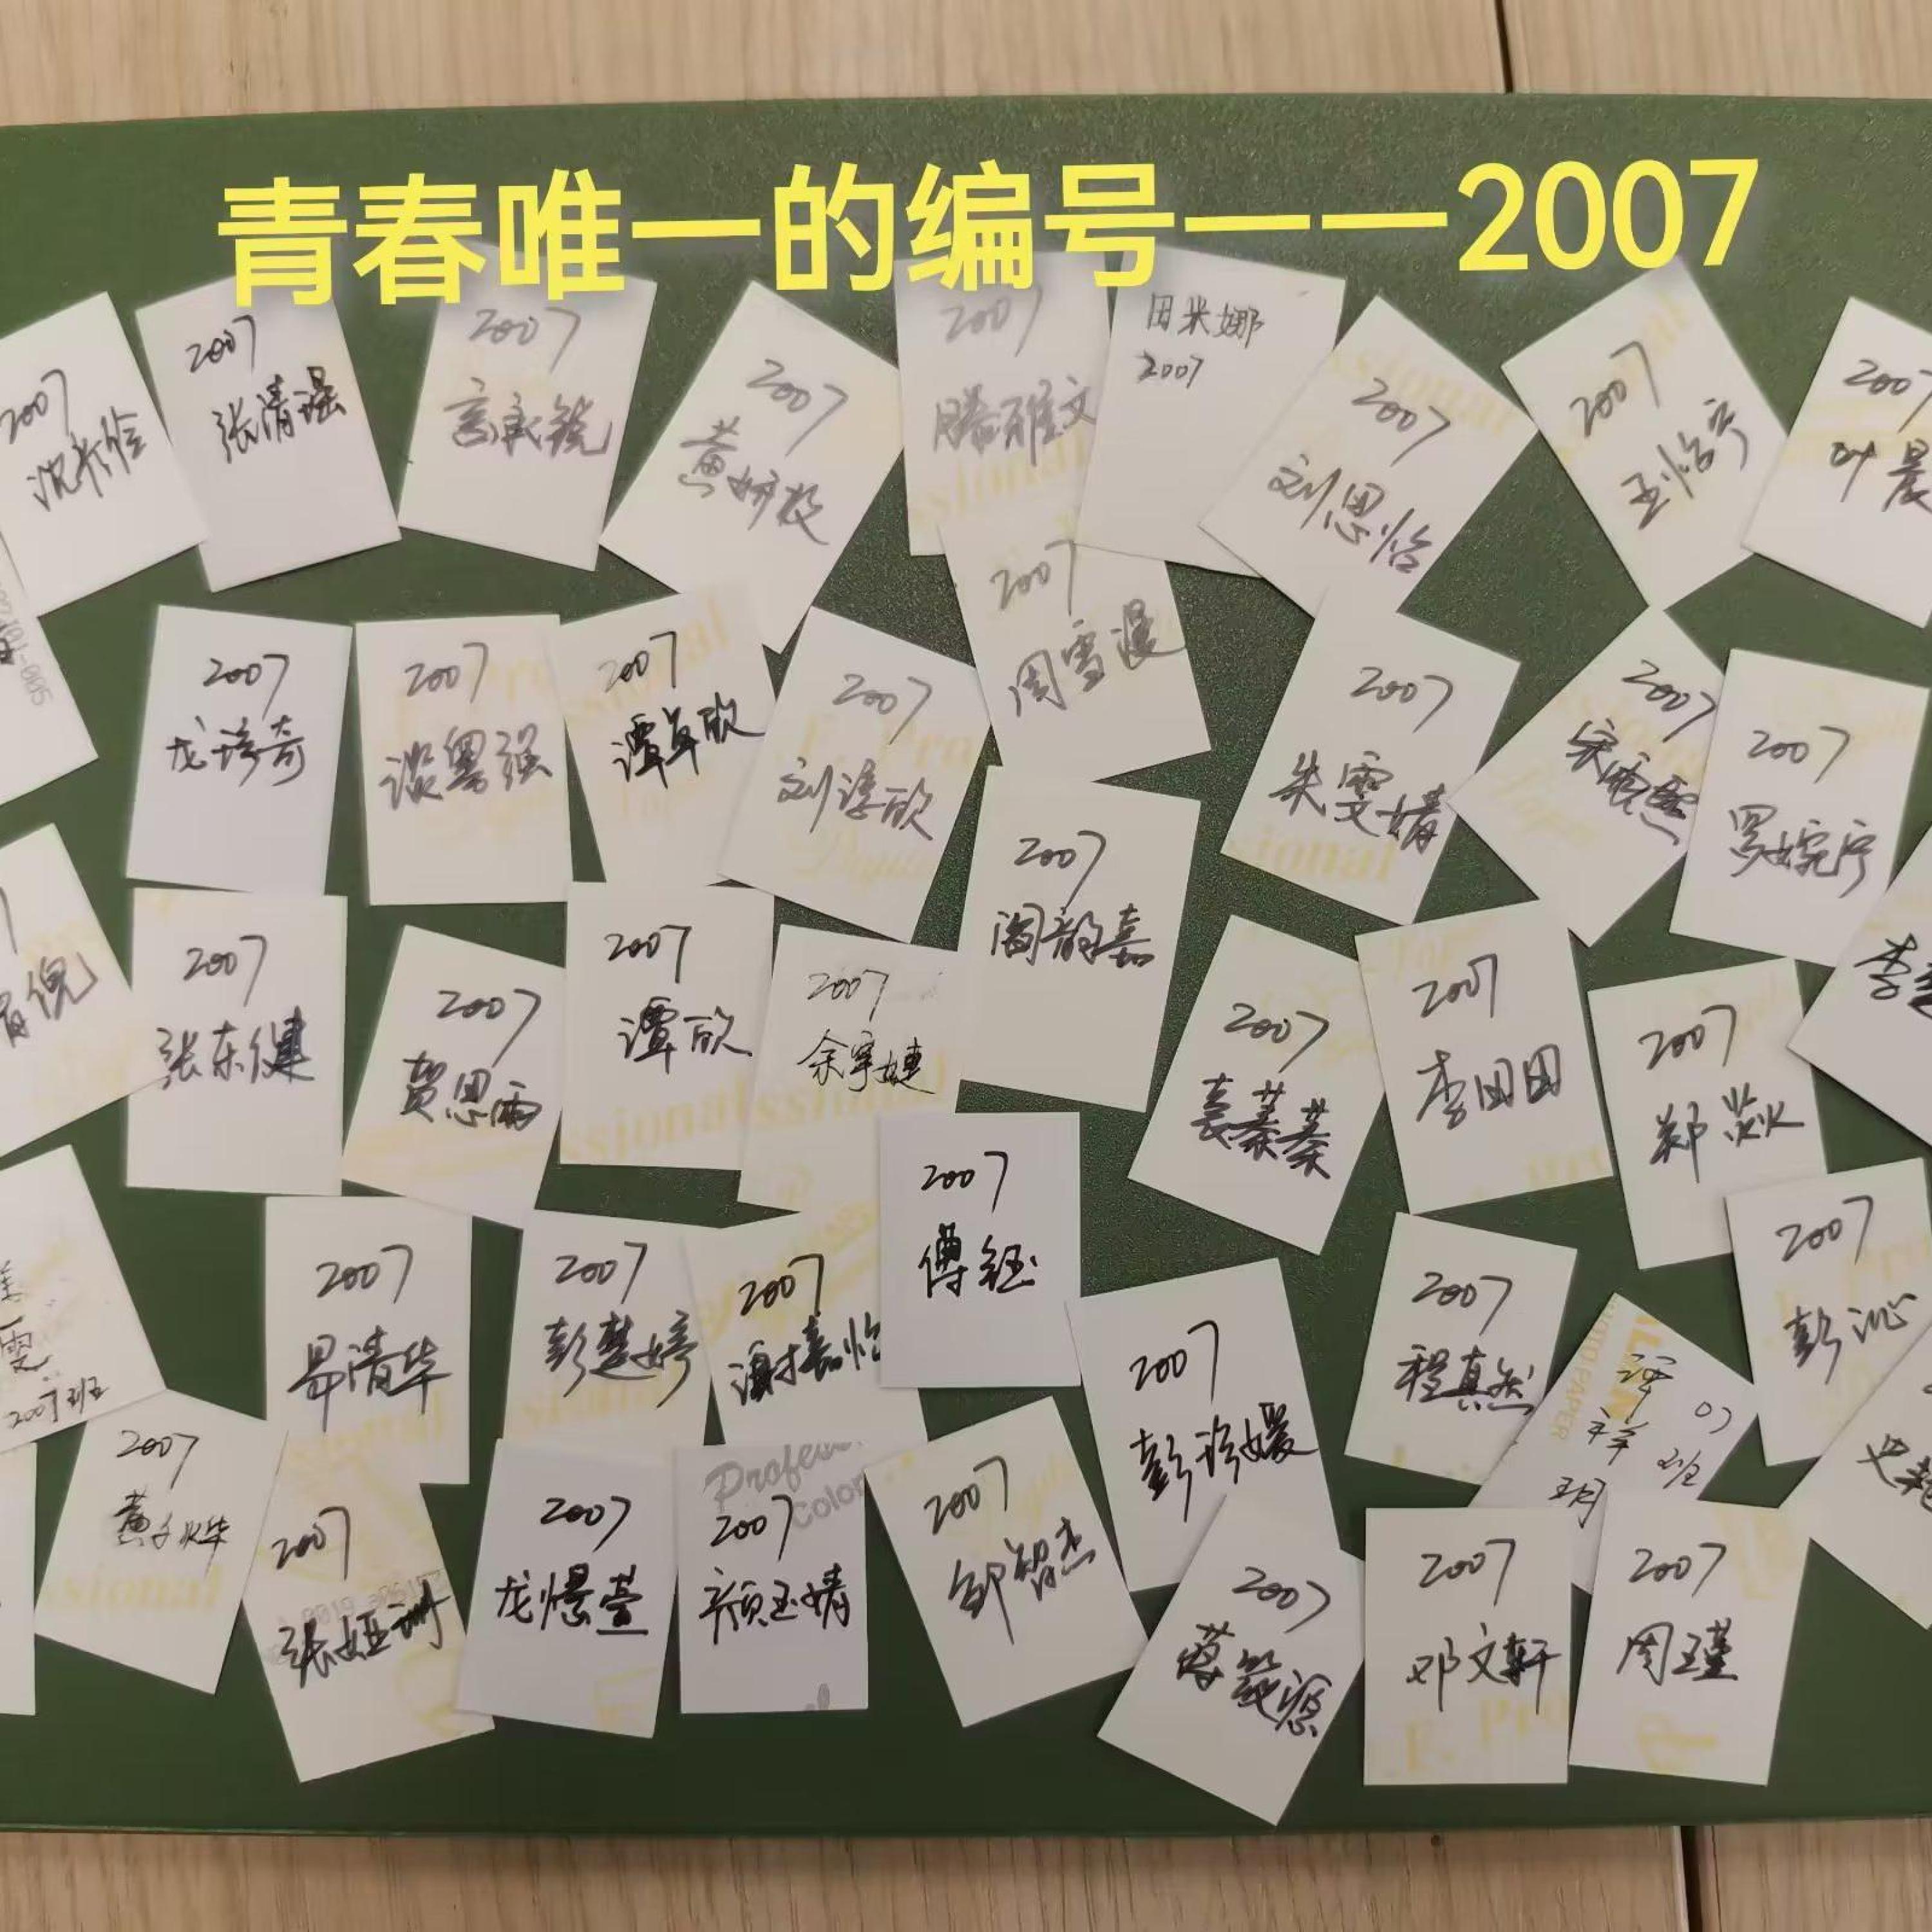 青春唯一的编号——2007
2007
2007
张清强
2007
言承锐
2007
2007
滕雅文
田米娜
2007
2007
刘思怡
2007
王怡宁
2007
叶晨
2007
龙琦奇
2007
谈粤强
2007
谭卓欣
2007
刘淳欣
2007
周雪漫
2007
朱雯婧
2007
2007
罗婉宁
2007
张东健
2007
贺思雨
2007
谭欣
2007
余宇婕
2007
阎韵嘉
2007
袁蓁蓁
2007
李田田
2007
郑焱
雯
2007班
2007
易清华
2007
彭楚婷
2007
谢嘉怡
2007
傅钰
2007
彭珍媛
2007
程真然
2007
彭沁
2007
黄子烨
2007
张娅
2007
龙憬萱
Professional
Color
2007
颜玉婧
2007
邹智杰
2007
蒋筱源
PHOTO PAPER
07
祥
班
2007
邓文轩
2007
周瑾